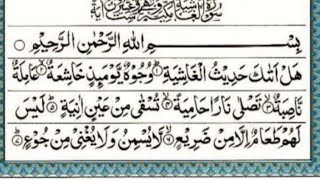 سُوْرَةُ الْغَاشِيَةِ
بِسْمِ اللهِ الرَّحْمٰنِ الرَّحِيْمِ
هَلْ اَتٰىكَ حَدِيْثُ الْغَاشِيَةِ وُجُوْهٌ يَّوْمَئِذٍ خَاشِعَةٌ عَامِلَةٌ
نَّاصِبَةٌ تَصْلٰى نَارًا حَامِيَةً تُسْقٰى مِنْ عَيْنٍ اٰنِيَةٍ لَيْسَ
لَهُمْ طَعَامٌ اِلَّا مِنْ ضَرِيْعٍ لَّا يُسْمِنُ وَلَا يُغْنِيْ مِنْ جُوْعٍ